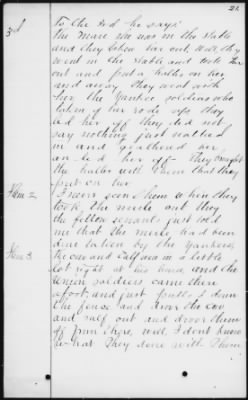 21
3rd
To the 3rd he says
the mare she was in the stable
and they taken her out. Well, they
went in the stable and took her
out and put a halter on her
and away they went with
her the Yankee soldiers who
taken her rode up they
led her off they did not
say nothing just walked
in and her
and led her off They brought
the halter with them that they
put on her
Item 2
I never seen them when they
took the mule out they
the fellow servants just told
me that the mule had been
taken by the Yankees
Item 3
the cow and calf was in a little
lot right at his house and the
Union soldiers came there
afoot and just pulled down
the fence and drove the cow
and calf out and drove them
off from there, well I dont know
what they done with them